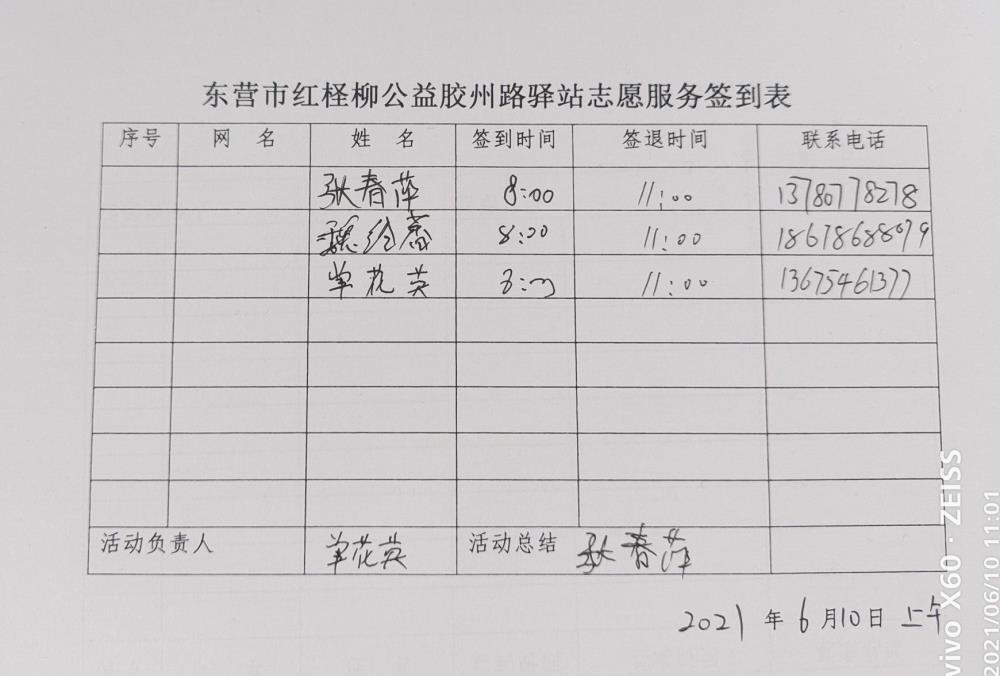 东营市红柽柳公益胶州路驿站志愿服务签到表
序号 网 名 姓 名 签到时间 签退时间 联系电话
张春萍 8:00 11:00 13780778278
8:00 11:00 18678688079
单花英 8:00 11:00 13675461377
活动负责人 单花英 活动总结 张春萍
2021 年 6 月 10 日 上午
vivo X60 · ZEISS
2021/06/10 11:01